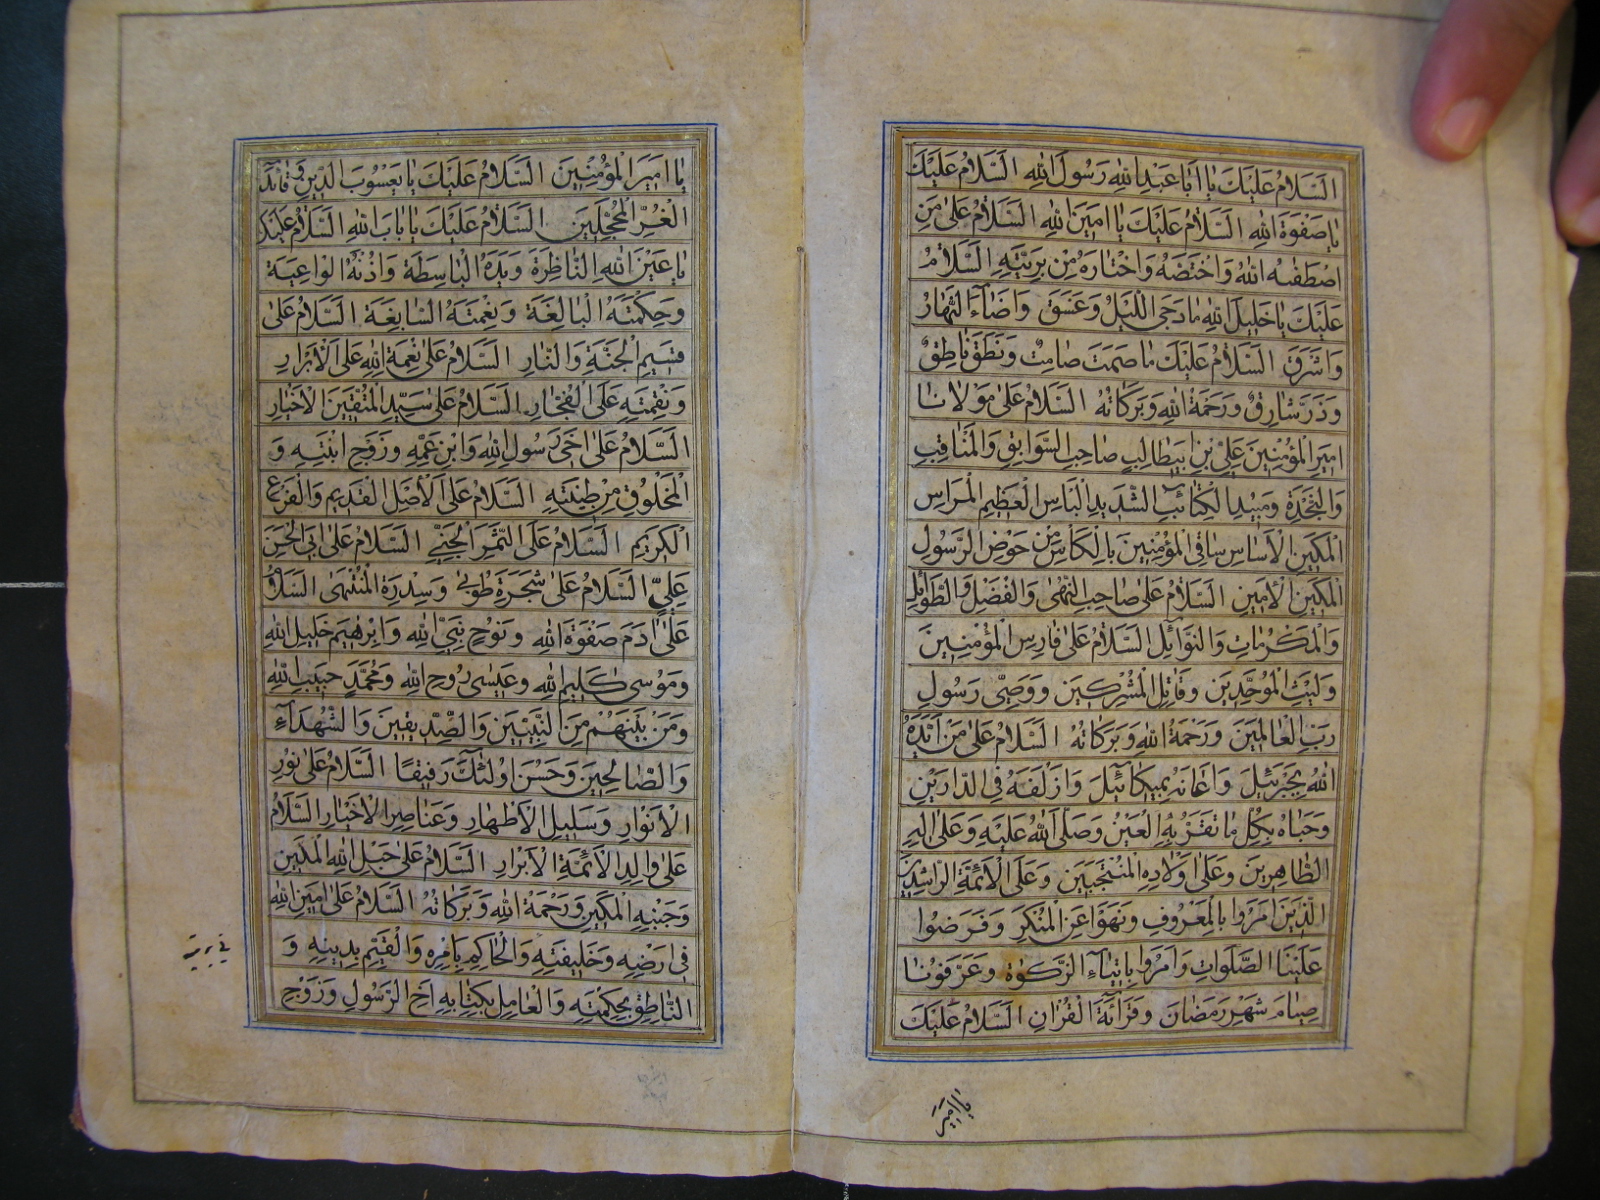 السَّلامُ عَلَيْكَ يا اَبا عَبْدِ اللهِ رَسُولَ اللهِ السَّلامُ عَلَيْكَ
يا صَفْوَةَ اللهِ السَّلامُ عَلَيْكَ يا اَمينَ اللهِ السَّلامُ عَلى مَنِ
اصْطَفٰيهُ اللهُ وَاخْتَصَّهُ وَاخْتارَهُ مِنْ بَرِيَّتِهِ السَّلامُ
عَلَيْكَ يا خَليلَ اللهِ ما دَجَى اللَّيْلُ وَغَسَقَ وَاَضاءَ النَّهارُ
وَاَشْرَقَ السَّلامُ عَلَيْكَ ما صَمَتَ صامِتٌ وَنَطَقَ ناطِقٌ
وَذَرَّ شارِقٌ وَرَحْمَةُ اللهِ وَبَرَكاتُهُ السَّلامُ عَلى مَوْلانا
اَميرِ الْمُؤْمِنينَ عَلِيِّ بْنِ اَبيطالِبٍ صاحِبِ السَّوابِقِ وَالْمَناقِبِ
وَالنَّجْدَةِ وَمُبيدِ الْكَتائِبِ الشَّديدِ الْبَاْسِ الْعَظيمِ الْمِراسِ
الْمَكينِ الْاَساسِ ساقِي الْمُؤْمِنينَ بِالْكَاْسِ مِنْ حَوْضِ الرَّسُولِ
الْمَكينِ الْاَمينِ السَّلامُ عَلى صاحِبِ النُّهى وَالْفَضْلِ وَالطَّوائِلِ
وَالْمَكْرُماتِ وَالنَّوائِلِ السَّلامُ عَلى فارِسِ الْمُؤْمِنينَ
وَلَيْثِ الْمُوَحِّدينَ وَقاتِلِ الْمُشْرِكينَ وَوَصِيِّ رَسُولِ
رَبِّ الْعالَمينَ وَرَحْمَةُ اللهِ وَبَرَكاتُهُ السَّلامُ عَلى مَنْ اَيَّدَهُ
اللهُ بِجَبْرَئيلَ وَاَعانَهُ بِميكائيلَ وَاَزْلَفَهُ فِي الدّارَيْنِ
وَحَباهُ بِكُلِّ ما تَقَرُّ بِهِ الْعَيْنُ وَصَلَّى اللهُ عَلَيْهِ وَعَلى الِهِ
الطّاهِرينَ وَعَلى اَوْلادِهِ الْمُنْتَجَبينَ وَعَلَى الْاَئِمَّةِ الرّاشِدينَ
الَّذينَ اَمَرُوا بِالْمَعْرُوفِ وَنَهَوْا عَنِ الْمُنْكَرِ وَفَرَضُوا
عَلَيْنَا الصَّلَواتِ وَاَمَرُوا بِايتاءِ الزَّكٰوةِ وَعَرَّفُونا
صِيامَ شَهْرِ رَمَضانَ وَقَرائَةَ الْقُرْانِ السَّلامُ عَلَيْكَ
يا اَميرَ
يا اَميرَ الْمُؤْمِنينَ السَّلامُ عَلَيْكَ يا يَعْسُوبَ الدّينِ وَقائِدَ
الْغُرِّ الْمُحَجَّلينَ السَّلامُ عَلَيْكَ يا بابَ اللهِ السَّلامُ عَلَيْكَ
يا عَيْنَ اللهِ النّاظِرَةَ وَيَدَهُ الْباسِطَةَ وَاُذُنَهُ الْواعِيَةَ
وَحِكْمَتَهُ الْبالِغَةَ وَنِعْمَتَهُ السّابِغَةَ السَّلامُ عَلى
قَسيمِ الْجَنَّةِ وَالنّارِ السَّلامُ عَلى نِعْمَةِ اللهِ عَلَى الْاَبْرارِ
وَنِقْمَتِهِ عَلَى الْفُجّارِ السَّلامُ عَلى سَيِّدِ الْمُتَّقينَ الْاَخْيارِ
السَّلامُ عَلى اَخي رَسُولِ اللهِ وَابْنِ عَمِّهِ وَزَوْجِ ابْنَتِهِ وَ
الْمَخْلُوقِ مِنْ طينَتِهِ السَّلامُ عَلَى الْاَصْلِ الْقَديمِ وَالْفَرْعِ
الْكَريمِ السَّلامُ عَلَى الثَّمَرِ الْجَنِيِّ السَّلامُ عَلى اَبِي الْحَسَنِ
عَلِيٍّ السَّلامُ عَلى شَجَرَةِ طُوبى وَسِدْرَةِ الْمُنْتَهى السَّلامُ
عَلى ادَمَ صَفْوَةِ اللهِ وَنُوحٍ نَبِيِّ اللهِ وَاِبْرٰهيمَ خَليلِ اللهِ
وَمُوسى كَليمِ اللهِ وَعيسى رُوحِ اللهِ وَمُحَمَّدٍ حَبيبِ اللهِ
وَمَنْ بَيْنَهُمْ مِنَ النَّبِيّينَ وَالصِّدّيقينَ وَالشُّهَداءِ
وَالصّالِحينَ وَحَسُنَ اُولئِكَ رَفيقًا السَّلامُ عَلى نُورِ
الْاَنْوارِ وَسَليلِ الْاَطْهارِ وَعَناصِرِ الْاَخْيارِ السَّلامُ
عَلى والِدِ الْاَئِمَّةِ الْاَبْرارِ السَّلامُ عَلى حَبْلِ اللهِ الْمَتينِ
وَجَنْبِهِ الْمَكينِ وَرَحْمَةُ اللهِ وَبَرَكاتُهُ السَّلامُ عَلى اَمينِ اللهِ
في اَرْضِهِ وَخَليفَتِهِ وَالْحاكِمِ بِاَمْرِهِ وَالْقَيِّمِ بِدينِهِ وَ
النّاطِقِ بِحِكْمَتِهِ وَالْعامِلِ بِكِتابِهِ اَخِ الرَّسُولِ وَزَوْجِ
في بريته